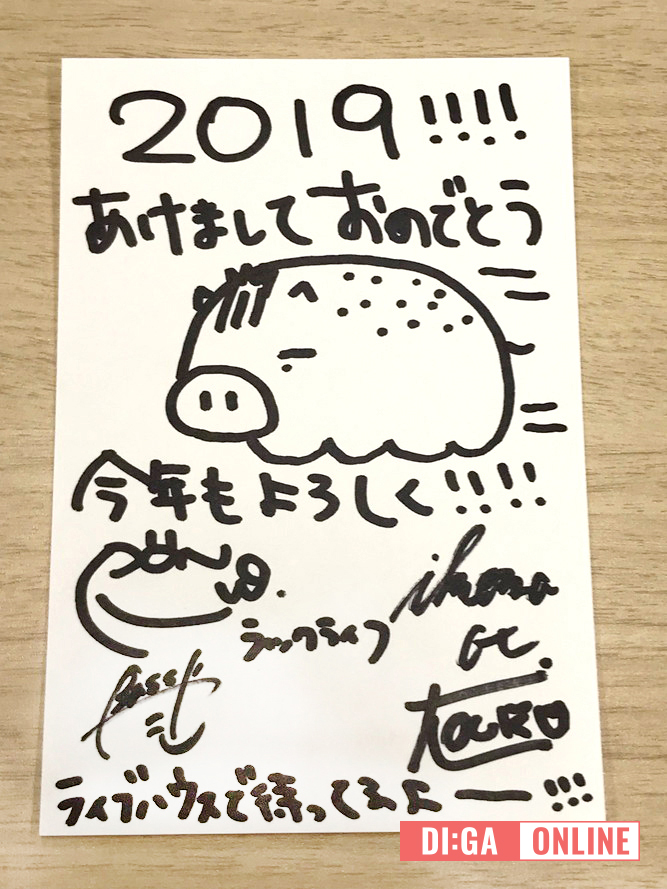 2019!!!!
あけましておめでとう
今年もよろしく!!!!
ラックライフ
ikoma
GC.
TAKURO
ライブハウスで待ってるよー!!!
DI:GA ONLINE